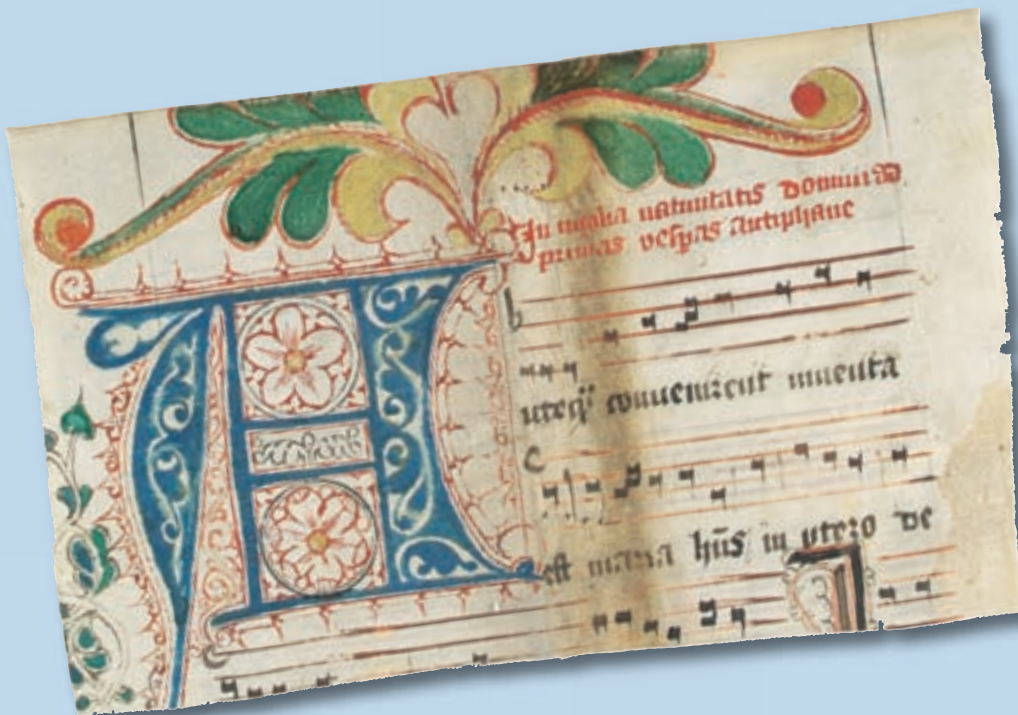 In vigilia natiuitatis domini ad
primas vesp̄as antiphane
A
uteqꝫ conuenirent inuenta
est maria hn̄s in vtero de